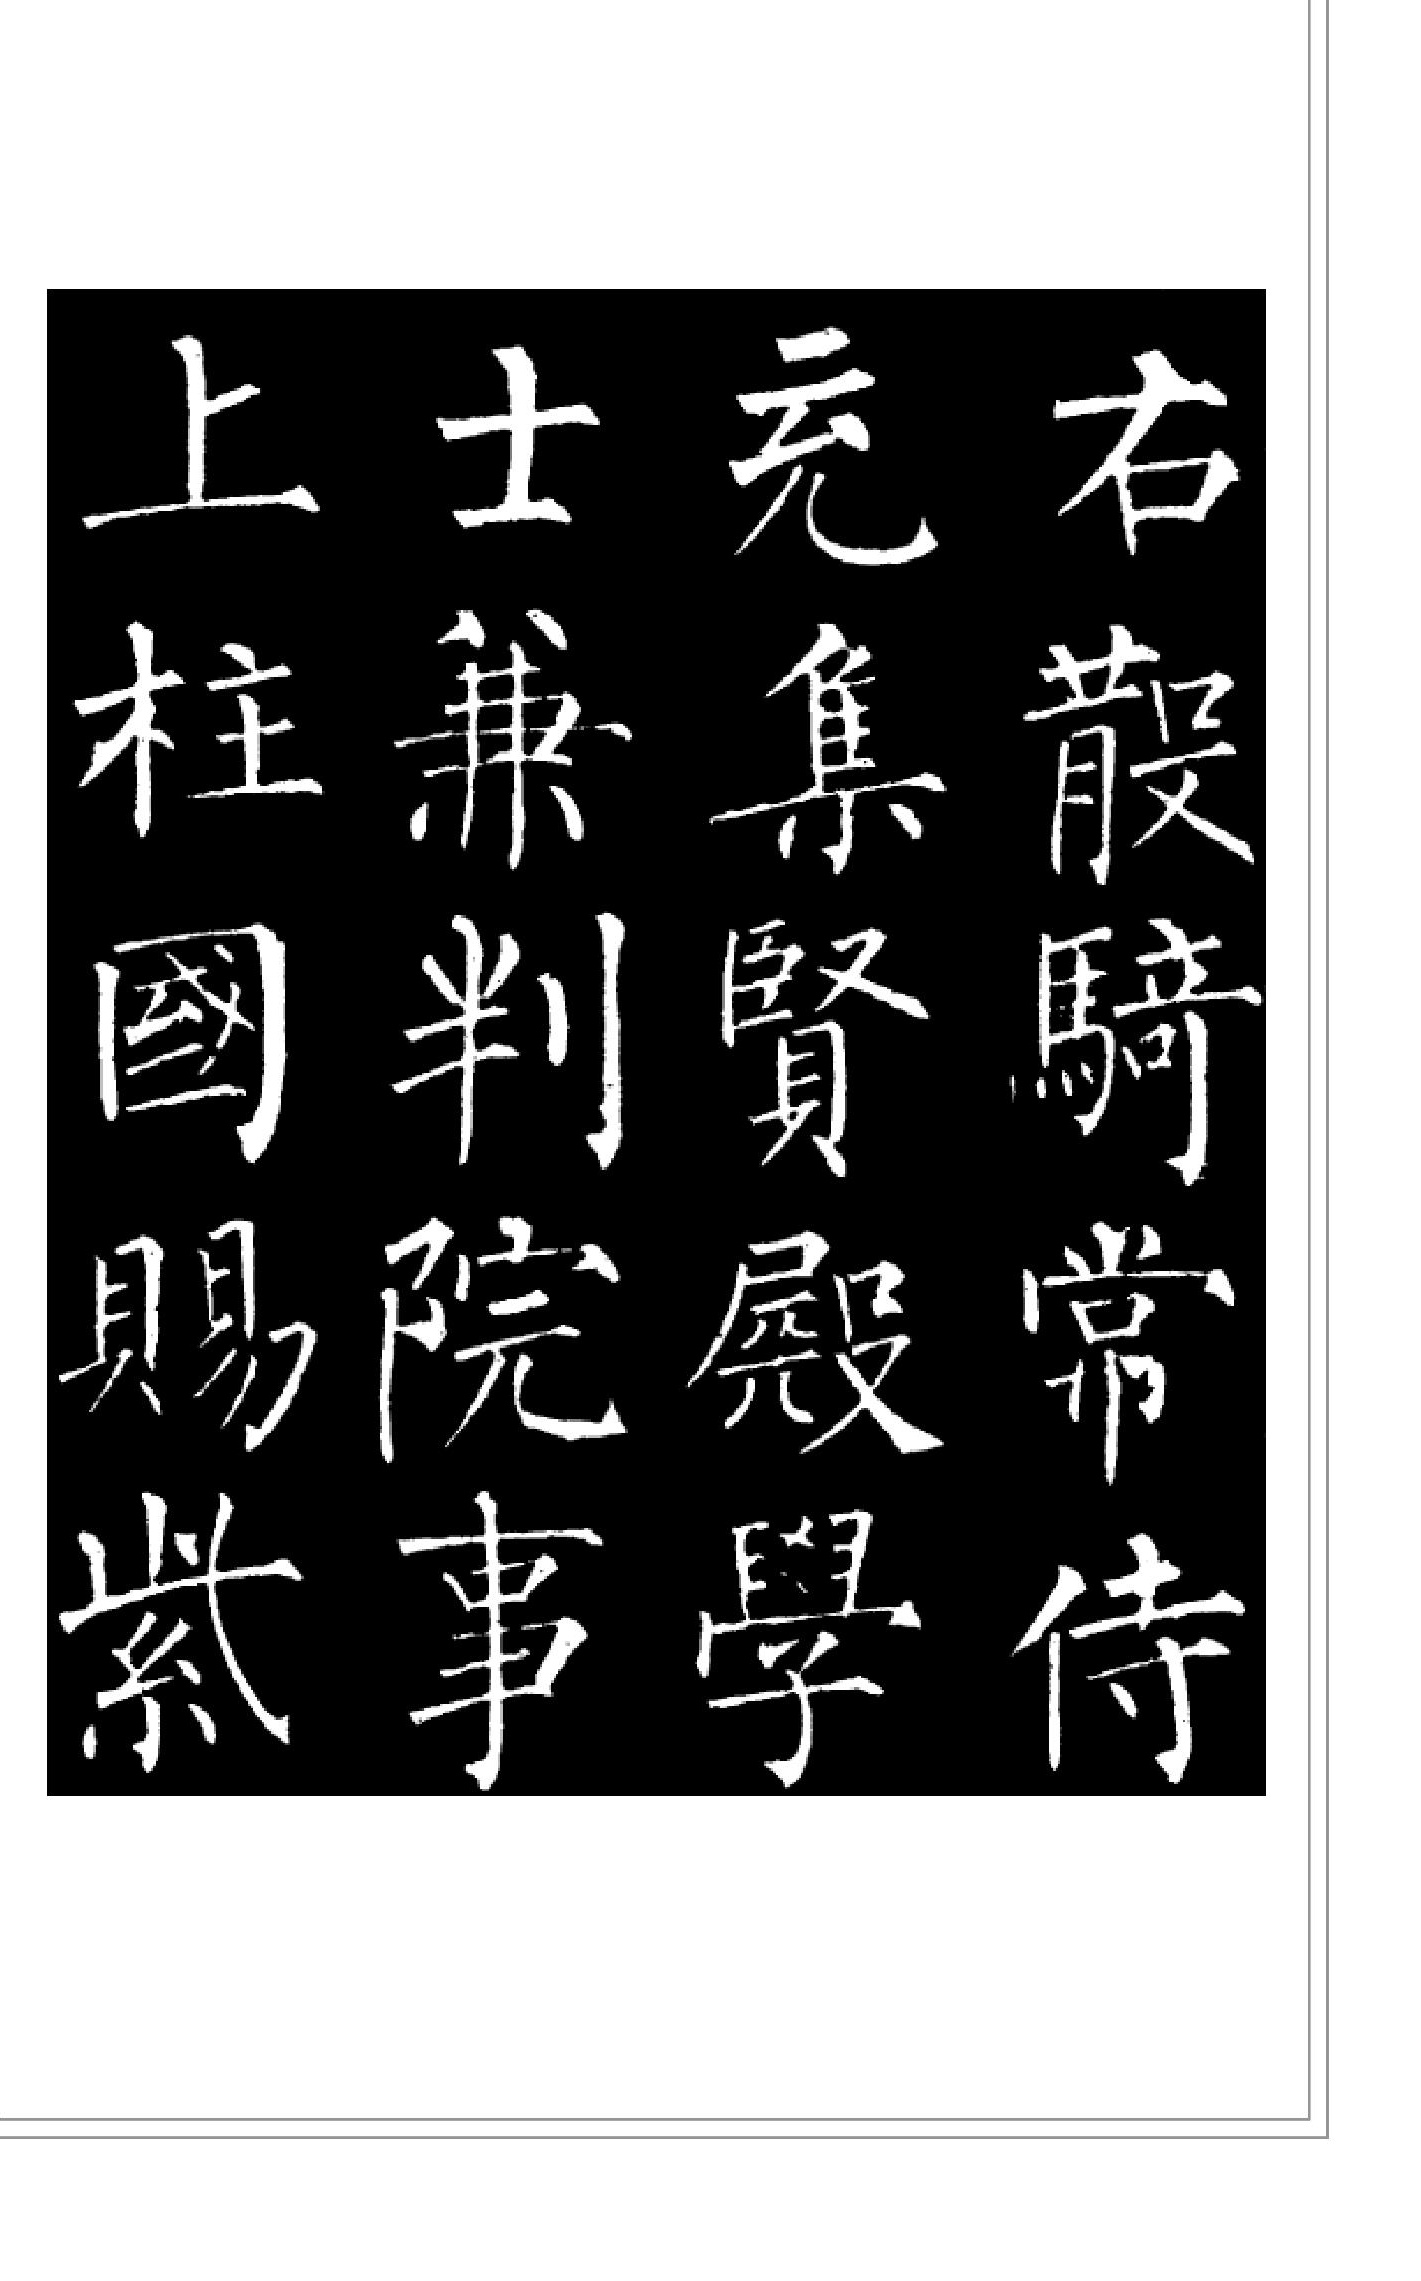 右散騎常侍
充集賢殿學
士兼判院事
上柱國賜紫